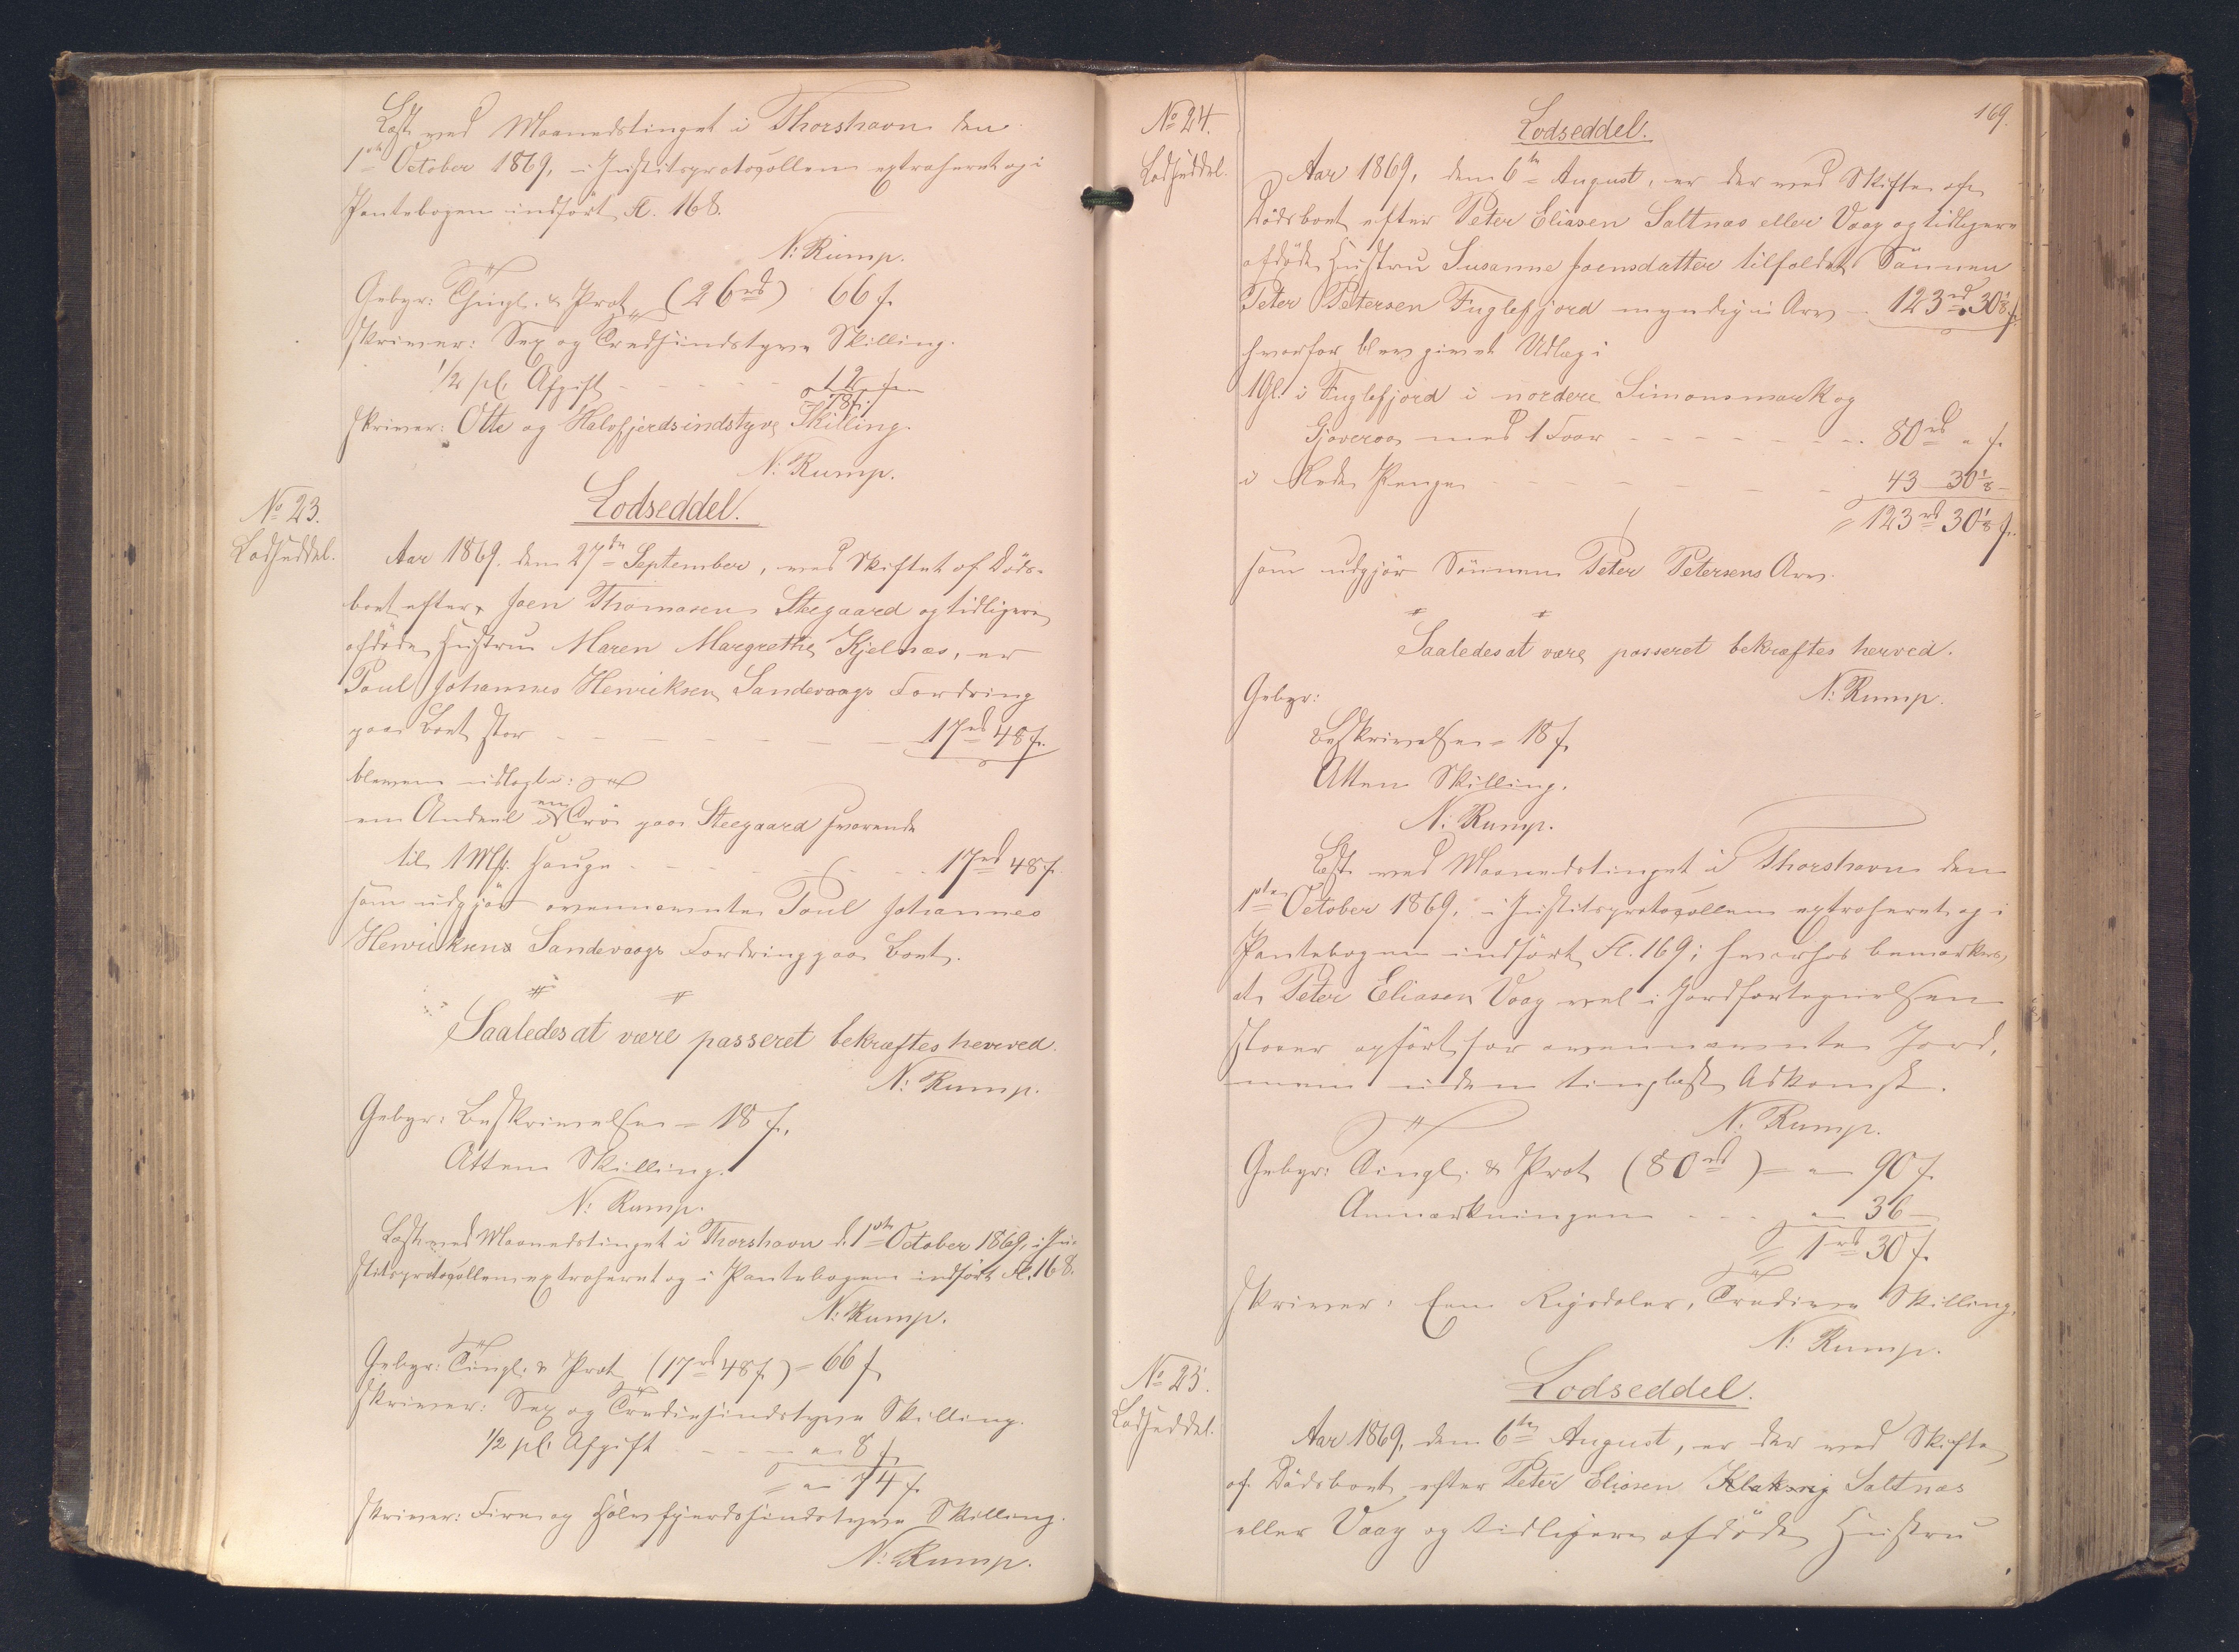 Læst ved Maanedstinget i Thorshavn den
1ste October 1869, i Justitsprotocollen extraheret og i
Pantebogen indført Fl. 168.
N: Rump.
Gebyr: Thingl. & Prot. (26 rd) 66 s.
skriver: Sex og Tredsindstyve Skilling.
1/2 pCt Afgift - - - - 12 s.
78 s.
skriver: Otte og Halvfjerdsindstyve Skilling.
N: Rump.
No 23.
Lodseddel.
Lodseddel.
Aar 1869. den 27de September, ved Skiftet af Døds-
boet efter Joen Thomasen Steegaard og tidligere
afdøde Hustru Maren Margrethe Kjelnæs, er
Poul Johannes Henriksen Sandevaags Fordring
paa Boet stor - - - - - - - 17 rd 48 s.
bleven udlagt:
en Andeel i en Trø paa Steegaard svarende
til 1 Mk. Hauge - - - - - - 17 rd 48 s.
som udgjør ovennævnte Poul Johannes
Henriksens Sandevaags Fordring paa Boet.
Saaledes at være passeret bekræftes herved.
N: Rump.
Gebyr: Beskrivelsen = 18 s.
Atten Skilling.
N: Rump.
Læst ved Maanedstinget i Thorshavn d. 1ste October 1869, i Ju-
stitsprotocollen extraheret og i Pantebogen indført Fl. 168.
N: Rump.
Gebyr: Tingl. & Prot. (17 rd 48 s.) = 66 s.
skriver: Sex og Tredsindstyve Skilling.
1/2 pCt Afgift - - - - 8 s.
= 74 s.
skriver: Fire og Halvfjerdsindstyve Skilling.
N: Rump.
169.
No 24.
Lodseddel.
Lodseddel.
Aar 1869, den 6te August, er der ved Skifte af
Dødsboet efter Peter Eliasen Saltnæs eller Vaag og tidligere
afdøde Hustru Susanne Joensdatter tilfaldet Sønnen
Peter Petersen Fuglefjord myndig i Arv - 123 rd 30 1/8 s.
hvorfor blev givet Udlæg i
1 Gl. i Fuglefjord i nordere Simonsmark og
Gjøveraa med 1 Foer - - - - - - - 80 rd " s.
i Rede Penge - - - - - - - 43 - 30 1/8 -
= 123 rd 30 1/8 s.
som udgjør Sønnen Peter Petersens Arv.
Saaledes at være passeret bekræftes herved.
N: Rump.
Gebyr:
Beskrivelsen = 18 s.
Atten Skilling.
N: Rump.
Læst ved Maanedstinget i Thorshavn den
1ste October 1869, i Justitsprotocollen extraheret og i
Pantebogen indført Fl. 169; hvorhos bemærkes,
at Peter Eliasen Vaag vel i Jordfortegnelsen
staaer opført for ovennævnte Jord,
men uden tinglæst Adkomst.
N: Rump.
Gebyr: Tingl. & Prot (80 rd) = " 90 s.
Anmærkningen - - - " 36 -
= 1 rd 30 s.
skriver: Een Rigsdaler, Tredive Skilling.
N: Rump.
No 25.
Lodseddel.
Lodseddel.
Aar 1869, den 6te August, er der ved Skifte
af Dødsboet efter Peter Eliasen Klaksvig Saltnæs
eller Vaag og tidligere afdøde Hustru